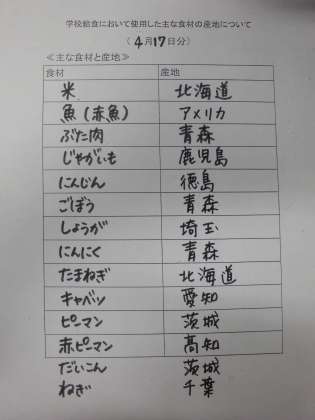 学校給食において使用した主な食材の産地について
(4月17日分)
≪主な食材と産地≫
食材 産地
米 北海道
魚(赤魚) アメリカ
ぶた肉 青森
じゃがいも 鹿児島
にんじん 徳島
ごぼう 青森
しょうが 埼玉
にんにく 青森
たまねぎ 北海道
キャベツ 愛知
ピーマン 茨城
赤ピーマン 高知
だいこん 茨城
ねぎ 千葉